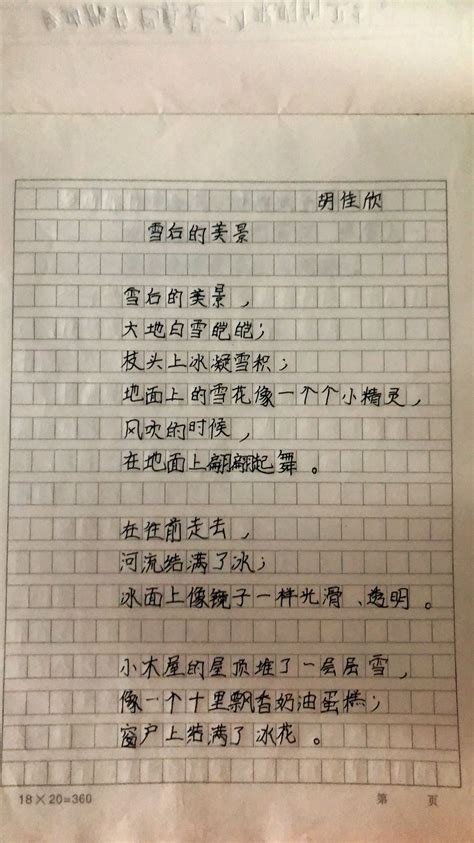 胡佳欣
雪后的美景
雪后的美景，
大地白雪皑皑；
枝头上冰凝雪积；
地面上的雪花像一个个小精灵，
风吹的时候，
在地面上翩翩起舞。
在往前走去，
河流结满了冰；
冰面上像镜子一样光滑、透明。
小木屋的屋顶堆了一层层雪，
像一个十里飘香奶油蛋糕；
窗户上结满了冰花。
18×20=360 第 页